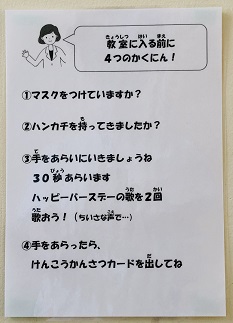 教室に入る前に
４つのかくにん！
①マスクをつけていますか？
②ハンカチを持ってきましたか？
③手をあらいにいきましょうね
３０秒あらいます
ハッピーバースデーの歌を２回
歌おう！（ちいさな声で…）
④手をあらったら、
けんこうかんさつカードを出してね